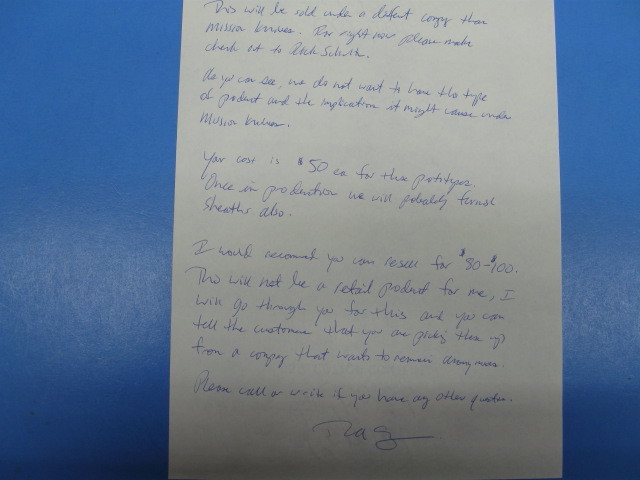 This will be sold under a different company than
Mission Knives. For right now please make
check out to Rick Schultz.
As you can see, we do not want to have this type
of product and the implication it might cause under
Mission Knives.
Your cost is $50 ea for these prototypes.
Once in production we will probably furnish
sheaths also.
I would recommend you can resell for $80-$100.
This will not be a retail product for me, I
will go through you for this and you can
tell the customer that you are picking them up
from a company that wants to remain anonymous.
Please call or write if you have any other questions.